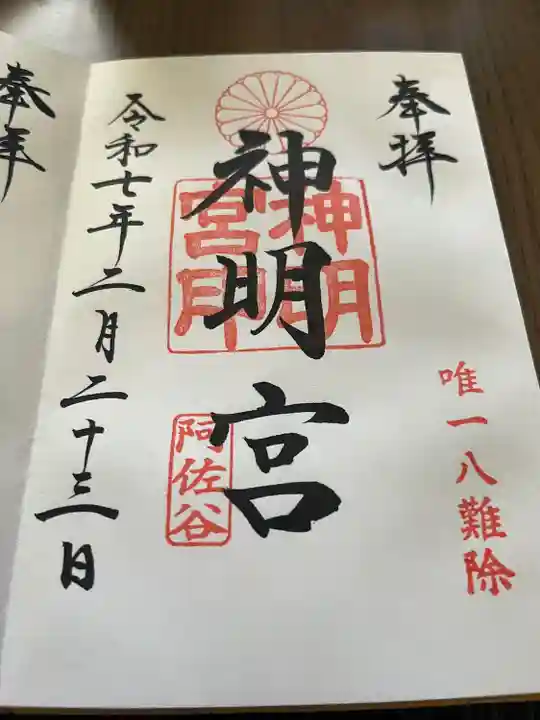 奉拝
唯一八難除
神明宮
神明宮印
阿佐谷
令和七年二月二十三日
奉拝